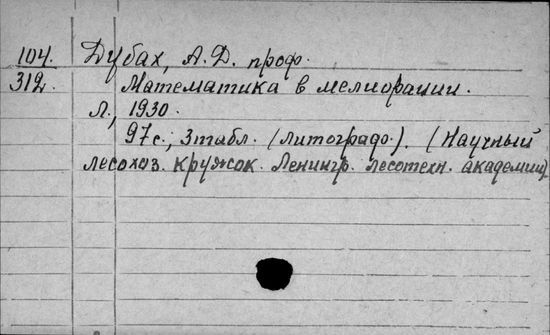 104. Дубах, А. Д. проф.
312. Математика в мелиорации.
Л., 1930.
97 с., 3 табл. (литографо.). (Научный
лесохоз. кружок. Ленингр. лесотехн. академии)